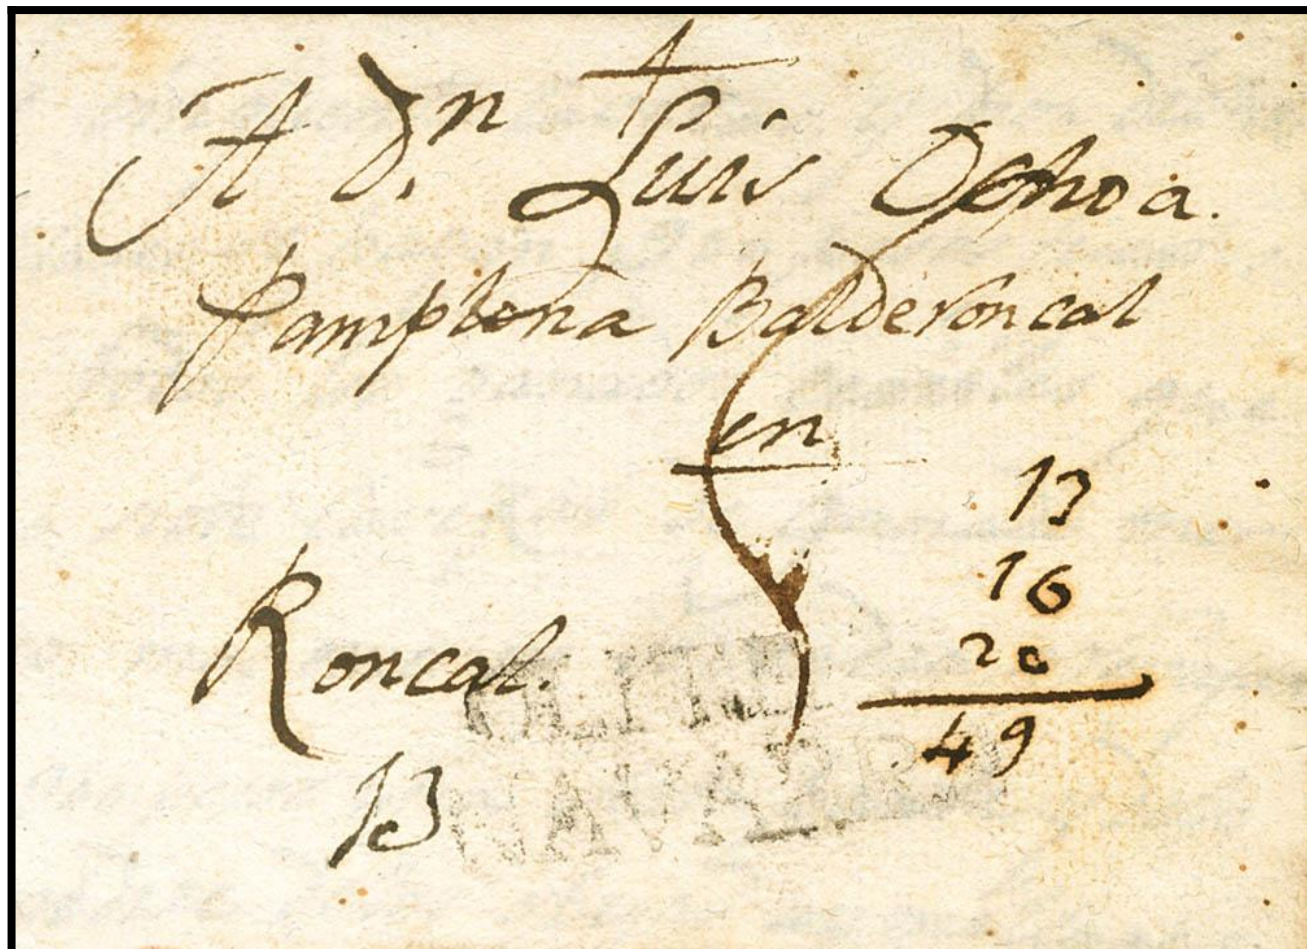 A D.n Luis Ochoa.
Pamplona Balderoncal
en
Roncal.
13
13
16
20
49
NAVARRA